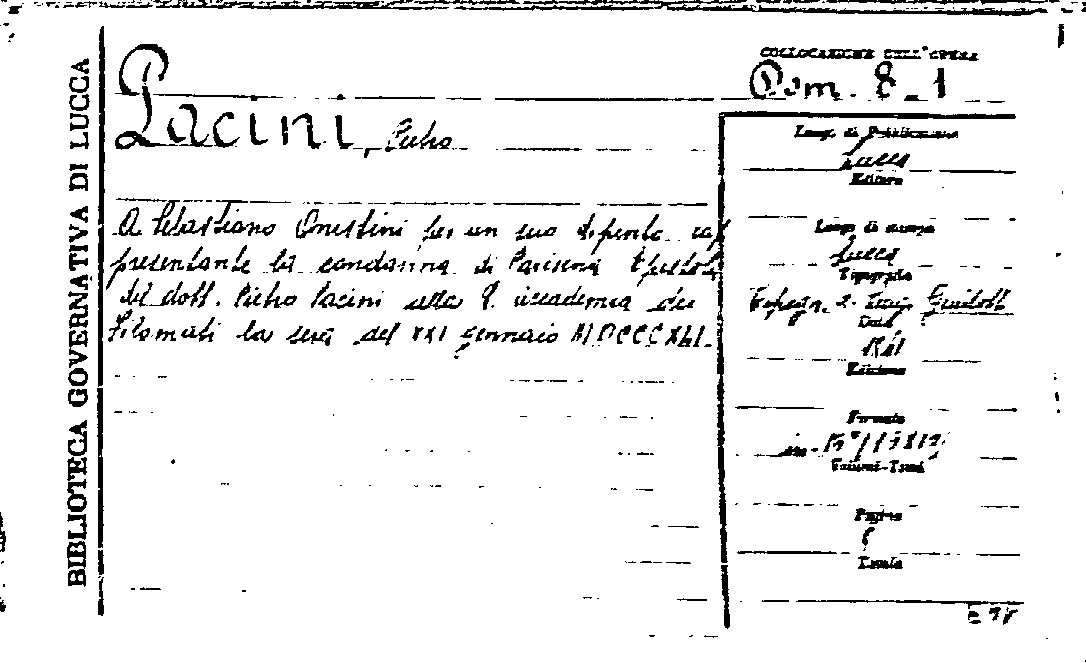 BIBLIOTECA GOVERNATIVA DI LUCCA
COLLOCAZIONE DELL'OPERA
Dom. 8-1
Pacini, Pietro
A Sebastiano Onestini per un suo dipinto rap
presentante la condanna di Parisina Epistola
del dott. Pietro Pacini alla R. Accademia dei
Filomati la sera del XXI Gennaio MDCCCXLI.
Luogo di Pubblicazione
Lucca
Editore
Luogo di stampa
Lucca
Tipografo
Tipogr. di Guidotti
Data
1841
Edizione
Formato
in-
Volumi-Tomi
Pagine
8
Tavole